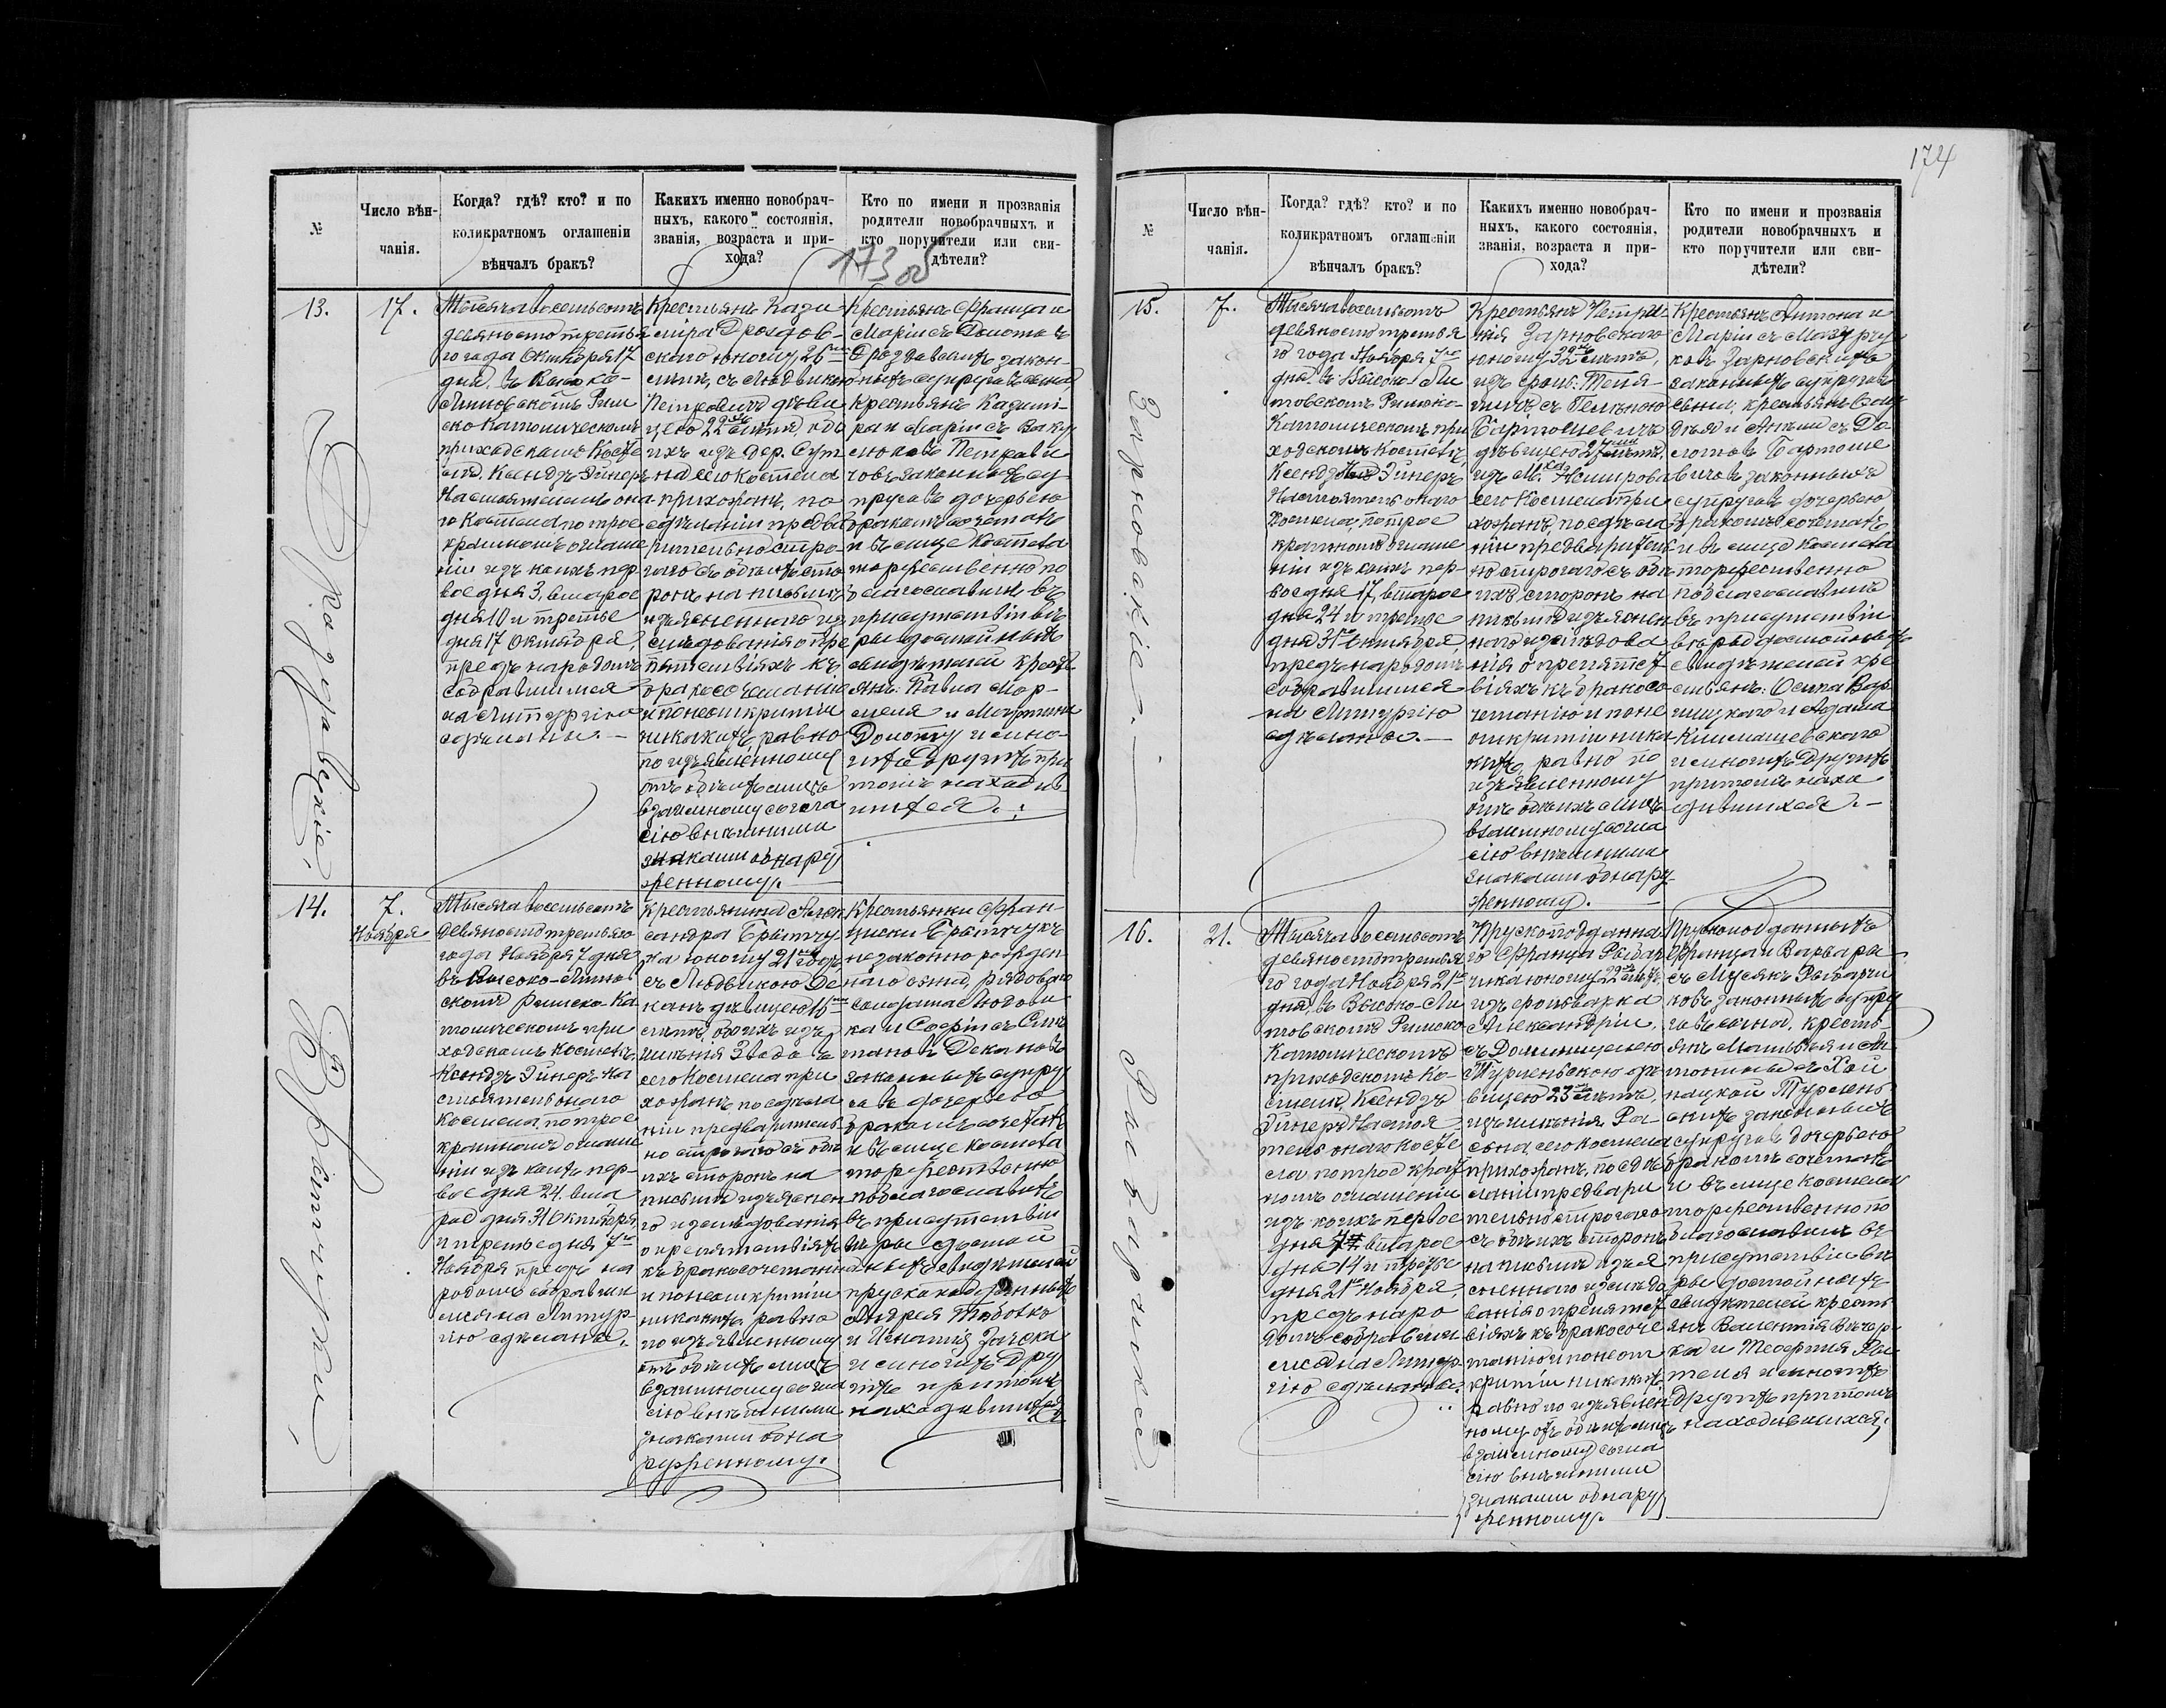 №
Число вѣн-
чанія.
Когда? гдѣ? кто? и по
коликратномъ оглашеніи
вѣнчалъ бракъ?
Какихъ именно новобрач-
ныхъ, какого состоянія,
званія, возраста и при-
хода?
Кто по имени и прозванія
родители новобрачныхъ и
кто поручители или сви-
дѣтели?
173 об
13.
17.
Тысяча восемьсотъ
девяносто третья
го года Октября 17
дня, въ Высоко-
Литовскомъ Рим
ско Католическомъ
приходскомъ Косте
лѣ, Ксендзъ Эйнеръ
Настоятель она
го Костела по трое
кратномъ оглаше
ніи изъ коихъ пер
вое дня 3, второе
дня 10 и третье
дня 17 Октября,
предъ народомъ
собравшимся
на Литургію
сдѣланы.—
Крестьянъ Кази-
міра Дроздов-
скаго юношу 26
лѣтъ, съ Людвикою
Петровичъ дѣви
цею 22 лѣтъ, обо
ихъ изъ дер.
на сего костела
прихожанъ, по
сдѣланіи предва
рительно стро
гаго съ обѣихъ сто
ронъ на письмѣ
изъясненнаго из
слѣдованія о пре
пятствіяхъ къ
бракосочетанію
и по неоткрытіи
никакихъ равно
по изъявленному
отъ обѣихъ лицъ
взаимному согла
сію внѣшними
знаками обнару
женному.—
Крестьянъ Франца и
Маріи съ
Дроздовскихъ закон-
ныхъ супруговъ сына
Крестьянъ Казимі-
ра и Маріи съ
Петрови
човъ законныхъ су-
пруговъ дочерью
бракомъ сочеталъ
и въ лице Костела
торжественно по
благословилъ въ
присутствіи вѣ
ры достойныхъ
свидѣтелей крестъ
янъ: Павла
и Мартина
и мно-
гихъ другихъ при
томъ находив
шихся.
Дроздовскіе.
14.
7.
Ноября
Тысяча восемьсотъ
девяносто третьяго
года Ноября 7 дня
въ Высоко-Литов
скомъ Римско-Ка
толическомъ при
ходскомъ Костелѣ,
Ксендзъ Эйнеръ На
стоятель онаго
Костела, по трое
кратномъ оглаше
ніи изъ коихъ пер-
вое дня 24, вто
рое дня 31 Октября
и третье дня 7
Ноября предъ на
родомъ собравшим
ся на Литур-
гію сдѣланы.
Крестьянина Алек
сандра Братчу-
ка юношу 21 года
съ Людвикою Де
канъ дѣвицею 16
лѣтъ, обоихъ изъ
имѣнія
сего Костела при
хожанъ по сдѣла
ніи предваритель
но строгаго съ обѣ
ихъ сторонъ на
письмѣ изъяснен
го изслѣдованія
о препятствіяхъ
къ бракосочетанію
и по неоткрытіи
никакихъ равно
по изъявленному
отъ обѣихъ лицъ
взаимному согла
сію внѣшними
знаками обна
руженному.
Крестьянки Фран-
циски Братчукъ
незаконно рожден
наго сына, рядоваго
солдата Людви
ка и Софіи съ
Декановъ
законныхъ супру
говъ дочерью
бракомъ сочеталъ
и въ лице костела
торжественно
поблагословилъ
въ присутствіи
вѣры достой
ныхъ свидѣтелей
прусско подданныхъ
Андрея
и Игнатія
и многихъ дру
гихъ притомъ
находившихся
Братчуки.
174
№
Число вѣн-
чанія.
Когда? гдѣ? кто? и по
коликратномъ оглашеніи
вѣнчалъ бракъ?
Какихъ именно новобрач-
ныхъ, какого состоянія,
званія, возраста и при-
хода?
Кто по имени и прозванія
родители новобрачныхъ и
кто поручители или сви-
дѣтели?
15.
7.
Тысяча восемьсотъ
девяносто третья
го года Ноября 7
дня, въ Высоко-Ли
товскомъ Римско-
Католическомъ при
ходскомъ Костелѣ,
Ксендзъ Эйнеръ
Настоятель онаго
Костела, по трое
кратномъ оглаше
ніи изъ коихъ пер-
вое дня 17, второе
дня 24 и третье
дня 31 Октября,
предъ народомъ
собравшимся
на Литургію
сдѣланы.—
Зарновскаго
юношу 32 лѣтъ,
изъ
съ Геленою
Бартошевичъ
дѣвицею 27 лѣтъ,
изъ м.
сего Костела при
хожанъ, по сдѣла
ніи предваритель
но строгаго съ обѣ
ихъ сторонъ на
письмѣ изъяснен
наго изслѣдова
нія о препятст
віяхъ къ бракосо
четанію и по не
открытіи ника
кихъ равно по
изъявленному
отъ обѣихъ лицъ
взаимному согла
сію внѣшними
знаками обнару
женному.
Крестьянъ Антона и
Маріи съ Мазурчу
ковъ Зарновскихъ
законныхъ супруговъ
сына, крестьянъ
и съ
Бартоше
вичовъ законныхъ
супруговъ дочерью
бракомъ сочеталъ
и въ лице костела
торжественно
поблагословилъ
въ присутствіи
вѣры достойныхъ
свидѣтелей кре
стьянъ: Осипа
и Адама
и многихъ другихъ
притомъ нахо
дившихся.—
Зарновскіе.
16.
21.
Тысяча восемьсотъ
девяносто третья
го года Ноября 21
дня, въ Высоко-Ли
товскомъ Римско
Католическомъ
приходскомъ Ко
стелѣ, Ксендзъ
Эйнеръ Настоя
тель онаго косте
ла по трое крат
номъ оглашеніи
изъ коихъ первое
дня 7, второе
дня 14 и третье
дня 21 Ноября,
предъ наро
домъ собравшим
ся на Литур
гію сдѣланы.
Прускоподданна
го Франца Рыбар
чика юношу 22 лѣтъ,
изъ фольварка
Александріи,
съ
дѣ
вицею 23 лѣтъ,
изъ имѣнія
сего костела
прихожанъ, по сдѣ
ланіи предвари
тельно строгаго
съ обѣихъ сторонъ
на письмѣ изъя
сненнаго изслѣдо
ванія о препятст
віяхъ къ бракосоче
танію и по неот
крытіи никакихъ
равно по изъявлен
ному отъ обѣихъ лицъ
взаимному согла
сію внѣшними
знаками обнару
женному.
Прускоподданныхъ
Франца и Варвары
съ Рыбарчи
ковъ законныхъ супру
говъ сына, кресть-
янъ
законныхъ
супруговъ дочерью
бракомъ сочеталъ
и въ лице костела
торжественно по
благословилъ въ
присутствіи вѣ
ры достойныхъ
свидѣтелей кресть
янъ Валентія
и
и многихъ
другихъ притомъ
находившихся.
Рыбарчики